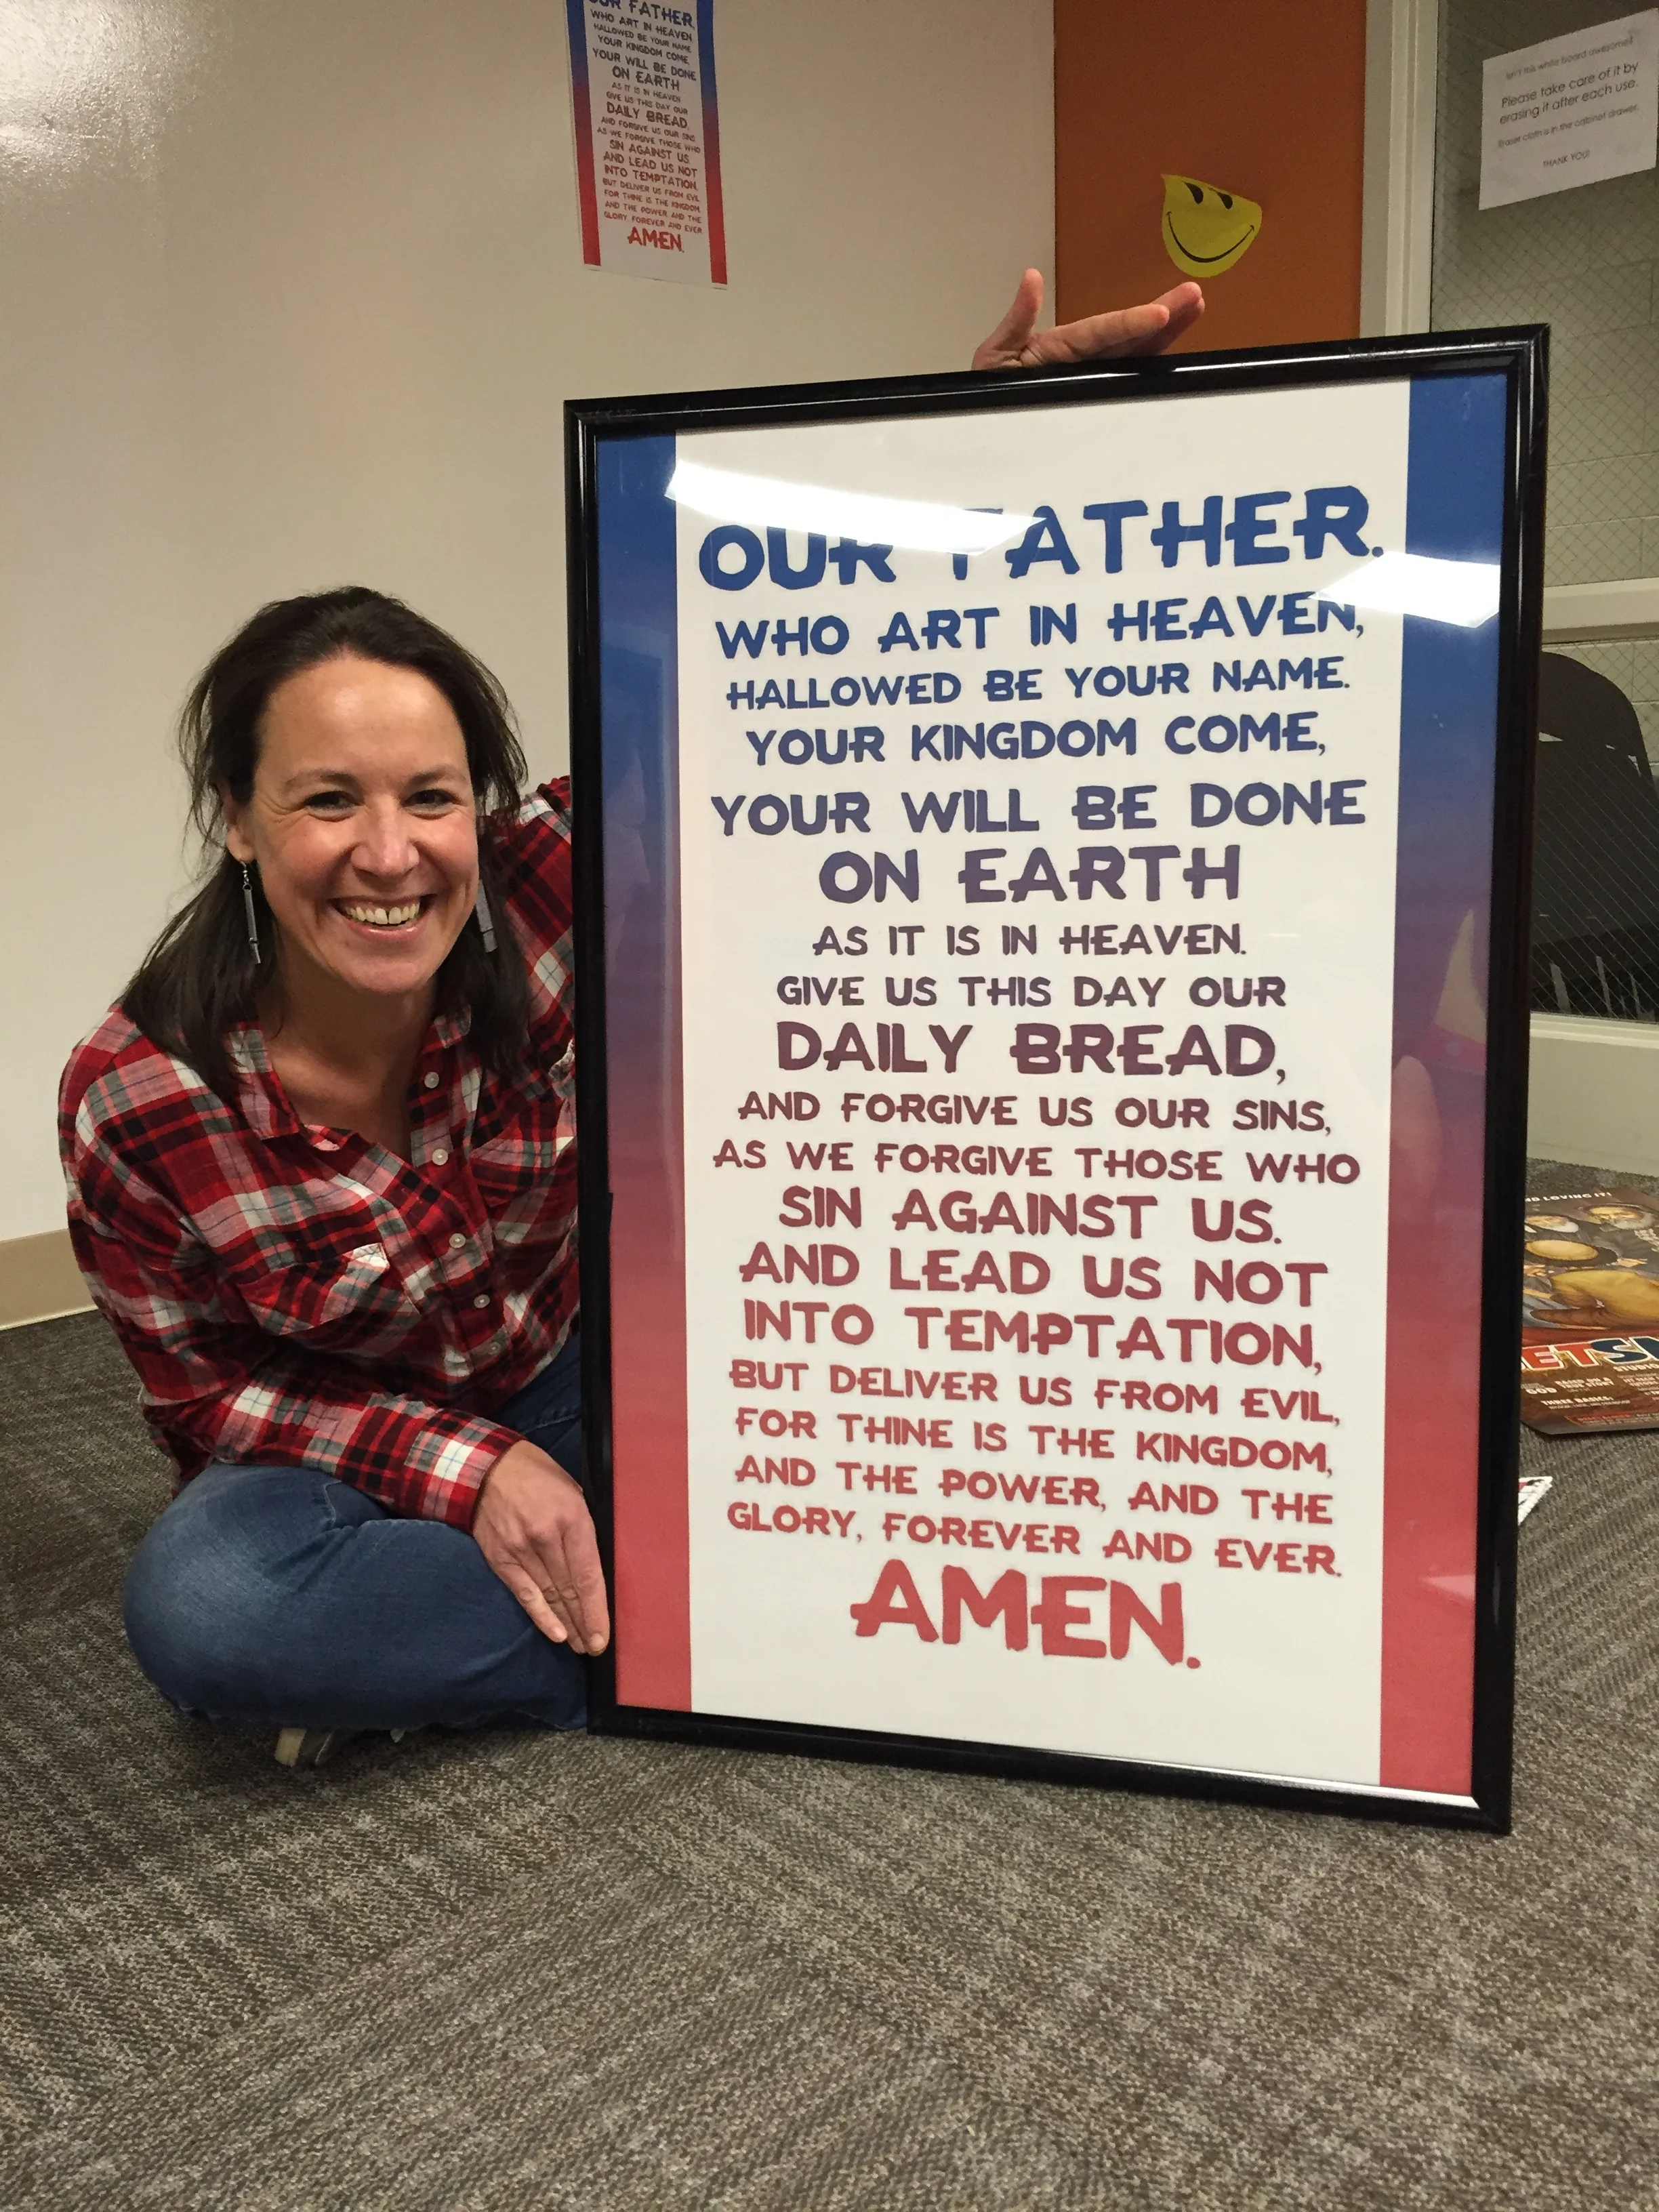 OUR FATHER
WHO ART IN HEAVEN
HALLOWED BE YOUR NAME
YOUR KINGDOM COME,
YOUR WILL BE DONE
ON EARTH
AS IT IS IN HEAVEN
GIVE US THIS DAY OUR
DAILY BREAD,
AND FORGIVE US OUR SINS
AS WE FORGIVE THOSE WHO
SIN AGAINST US
AND LEAD US NOT
INTO TEMPTATION,
BUT DELIVER US FROM EVIL
FOR THINE IS THE KINGDOM,
AND THE POWER, AND THE
GLORY, FOREVER AND EVER
AMEN.
Isn't this white board awesome?
Please take care of it by
erasing it after each use.
Eraser cloth is in the cabinet drawer.
THANK YOU!
OUR FATHER.
WHO ART IN HEAVEN,
HALLOWED BE YOUR NAME.
YOUR KINGDOM COME,
YOUR WILL BE DONE
ON EARTH
AS IT IS IN HEAVEN.
GIVE US THIS DAY OUR
DAILY BREAD,
AND FORGIVE US OUR SINS,
AS WE FORGIVE THOSE WHO
SIN AGAINST US.
AND LEAD US NOT
INTO TEMPTATION,
BUT DELIVER US FROM EVIL,
FOR THINE IS THE KINGDOM,
AND THE POWER, AND THE
GLORY, FOREVER AND EVER.
AMEN.
LOVING IT!